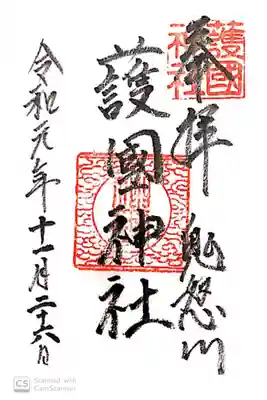 護國
神社
奉拝 鬼怒川
護國神社
令和元年十一月二十六日
CS Scanned with
CamScanner